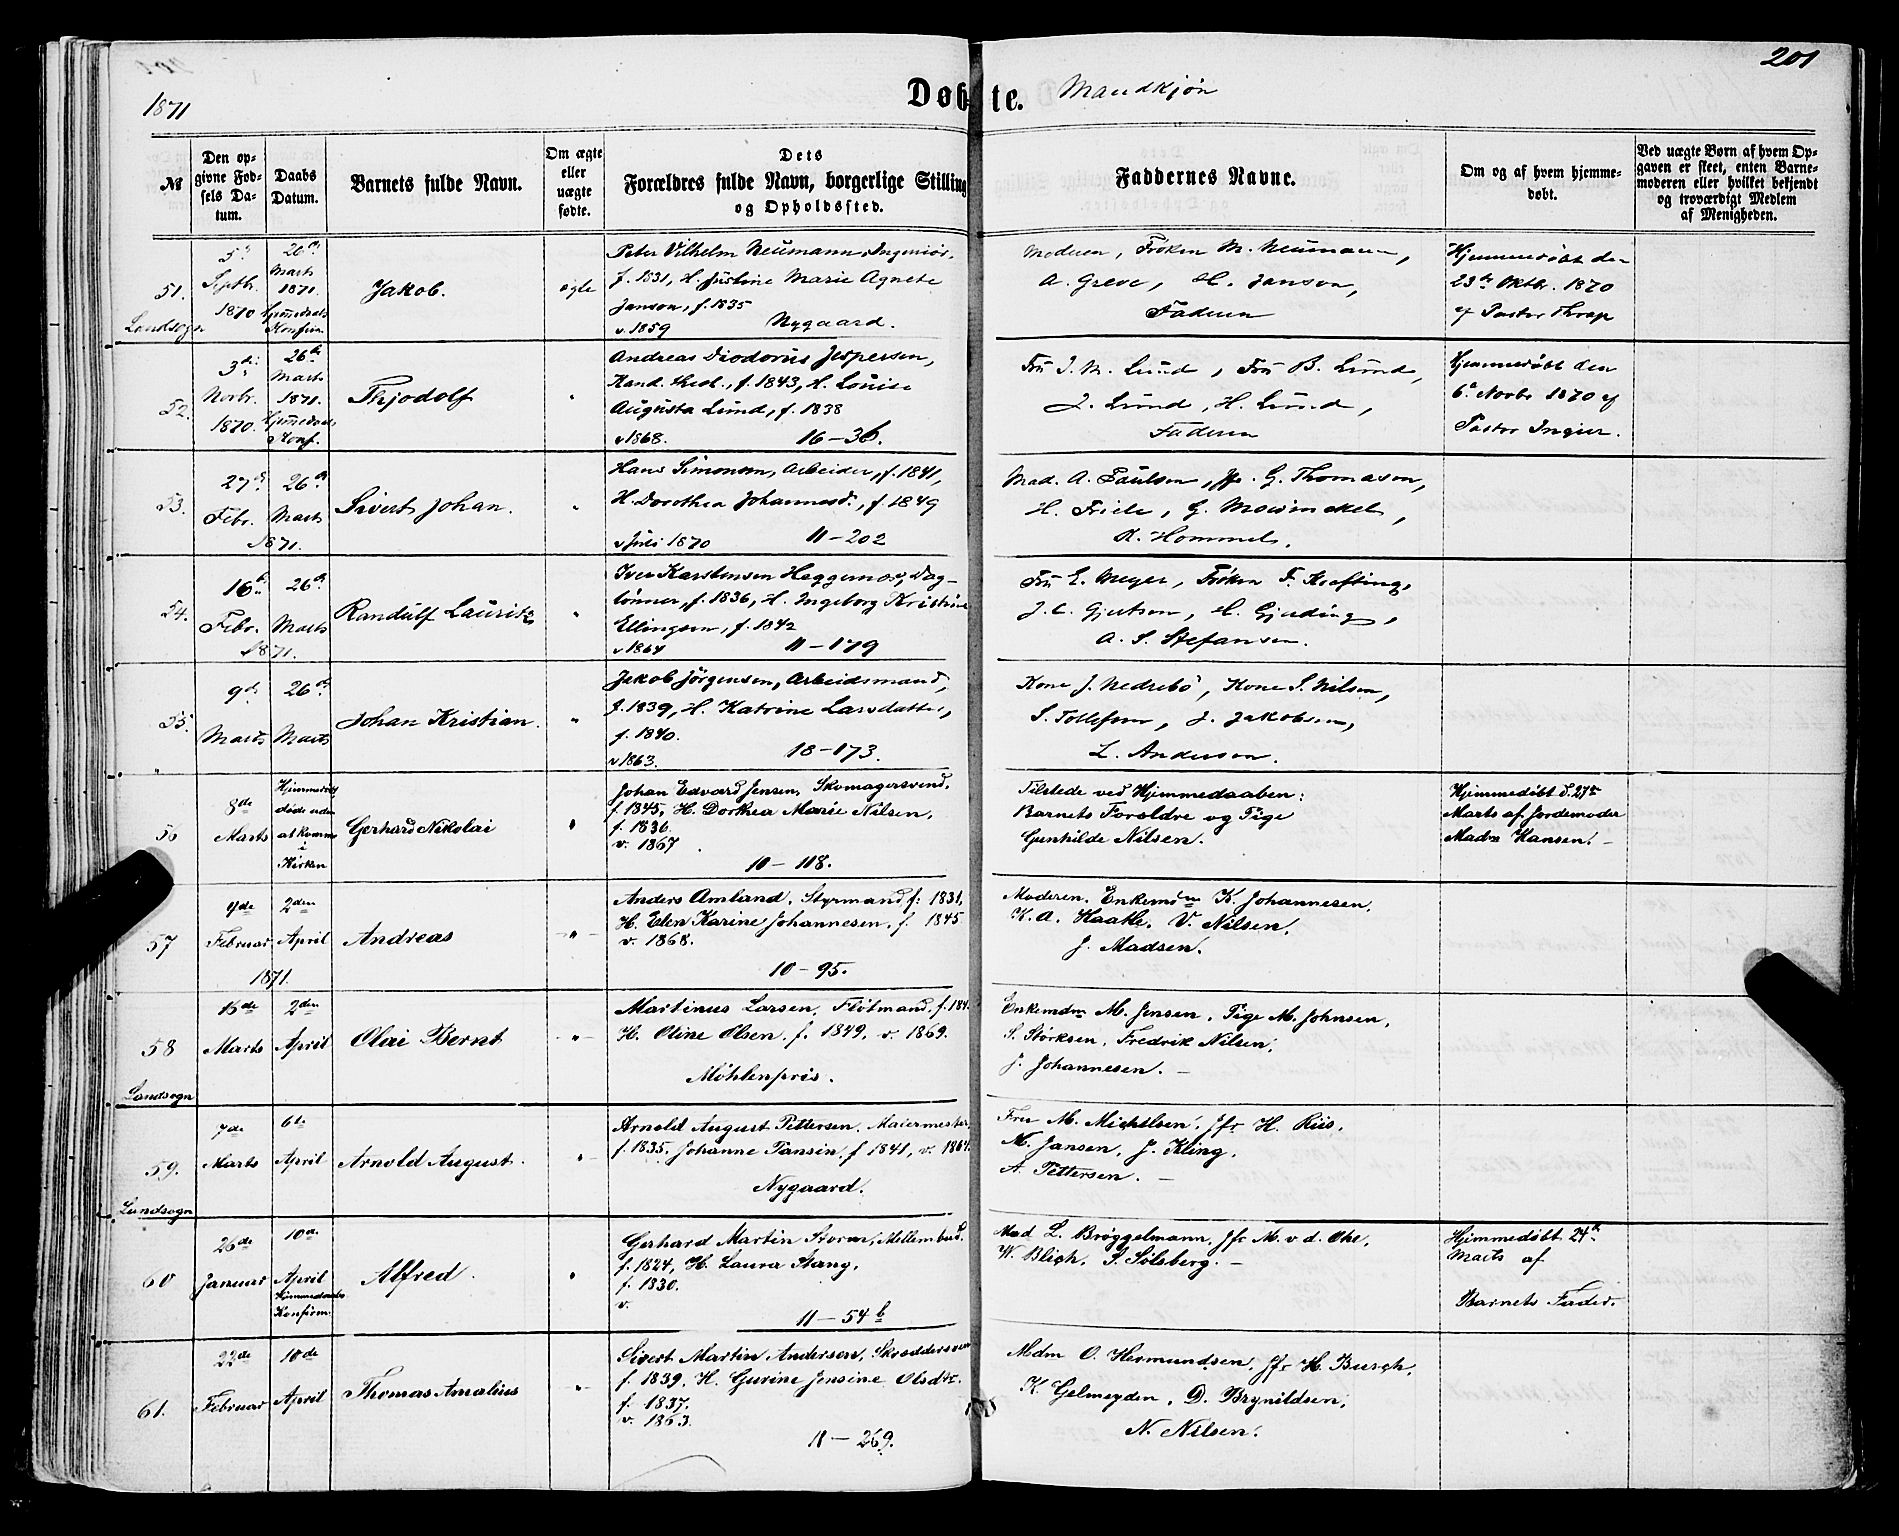 201
1871
Døbte. Mandkjøn
№
Den opgivne Fødsels Datum.
Daabs Datum.
Barnets fulde Navn.
Om ægte eller uægte fødte.
Dets Forældres fulde Navn, borgerlige Stilling og Opholdssted.
Faddernes Navne.
Om og af hvem hjemmedøbt.
Ved uægte Børn af hvem Opgaven er skeet, enten Barnemoderen eller hvilket bekjendt og troværdigt Medlem af Menigheden.
51.
Landsogn
5te Septbr. 1870
26de Marts 1871.
Hjemmedaabs Konfirm
Jakob.
ægte
Peter Vilhelm Neumann, Ingeniør,
f. 1831, H. Justine Marie Agnete
Janson, f. 1835
v. 1859 Nygaard.
Moderen, Frøken M. Neumann,
A. Greve, H. Janson,
Faderen
Hjemmedøbt den
23de Oktbr. 1870
af Pastor Thrap
52.
3die Novbr. 1870.
26de Marts 1871.
Hjemmedaabs Konf.
Thjodolf
"
Andreas Diodorus Jespersen,
Kand. theol., f. 1843, H. Louise
Augusta Lund, f. 1838
v 1868. 16-36.
Fru J. M. Lund, Fru B. Lund,
J. Lund, H. Lund,
Faderen
Hjemmedøbt den
6te Novbr 1870 af
Pastor Ingier.
53.
27de Febr.
26de Marts
1871.
Sivert Johan.
"
Hans Simonsen, Arbeider, f. 1841,
H. Dorothea Johannesd., f. 1849
v Juli 1870 11-202
Mad. A. Paulsen, Jfr. G. Thomason,
H. Friele, G. Mowinckel,
R. Hommel.
54.
16de Febr.
26de Marts
1871.
Randulf Lauritz
"
Iver Karstensen Heggernæs, Dag-
lønner, f. 1836, H. Ingeborg Kristine
Ellingsen, f. 1842
v 1864 11-179
Fru E. Meyer, Frøken F. Krafting,
J. C. Gjertsen, H. Gjerding,
A. S. Stefansen.
55.
9de Marts
26de Marts
Johan Kristian.
"
Jakob Jørgensen, Arbeidsmand,
f. 1839, H. Katrine Larsdatter,
f. 1840.
v 1863. 18-173.
Kone J. Nedrebø, Kone S. Nilsen,
S. Tollefsen, J. Jakobsen,
L. Anderson.
56
8de Marts
Hjemmedøbt
døde uden
at komme
i
Kirken
Gerhard Nikolai
"
Johan Edvard Jensen, Skomagersvend,
f. 1845, H. Dorthea Marie Nilsen,
f. 1836.
v. 1867
10-118.
Tilstede ved Hjemmedaaben:
Barnets Forældre og Pige
Gunhilde Nilsen.
Hjemmedøbt d. 27de
Marts af Jordemoder
Madm Hansen. -
57
9de Februar
2den April
1871.
Andreas
-"-
Anders Amland, Styrmand f: 1831,
H. Elen Karine Johannesen, f. 1845
v. 1868.
10-95.
Moderen. Enkemdm K. Johannesen,
K. A. Haatte, V. Nilsen,
J. Madsen.
58
Landsogn
15de Marts
2den April
Olai Bernt
-"-
Martinus Larsen, Fløtmand, f. 184
H. Oline Olsen, f. 1849, v. 1869.
Møhlenpris.
Enkemdm M. Jensen, Pige M. Johnsen,
S. Størksen, Fredrik Nilsen,
J. Johannesen. -
59.
Landsogn
7de Marts
6te April
Arnold August.
"
Arnold August Pettersen, Maiermester,
f. 1835. Johanne Jansen, f 1841, v. 1864.
Nygaard.
Fru M. Michelsen, Jfr H. Riis,
M. Jansen, J. Kling,
A. Pettersen. -
60
26de Januar
10de April
Hjemmedaabs
Konfirm.
Alfred.
"
Gerhard Martin Storm, Mellembud,
f. 1824, H. Laura Stang,
f. 1830.
v.
11-54 b
Mad L. Brøggelmann, Jfr M. v. d. Ohe,
W. Bligh, S. Solsberg. -
Hjemmedøbt 24de
Marts af
Barnets Fader.
61.
22de Februar
10de April
Thomas Amalius
-"-
Sivert Martin Andersen, Skræddersven
f. 1839. H. Gurine Jensine Olsdtr.
f. 1837.
v. 1863.
18-269.
Mdm O. Hermundsen, Jfr H. Busch,
K. Gelmeyden, D. Brynildsen,
N. Nilsen.